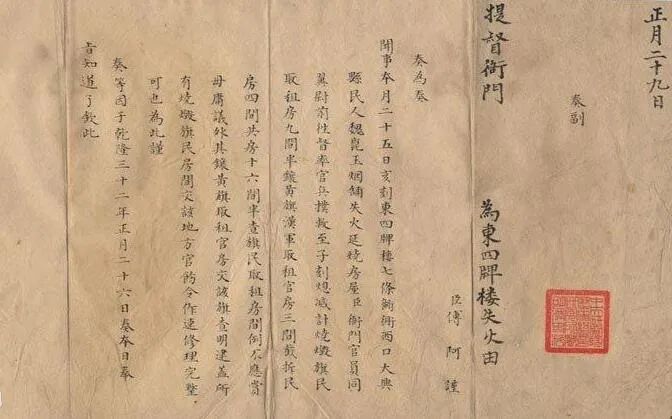 正月二十九日
奏副
提督衙門 為東四牌楼失火由
臣傅 阿謹
奏為奏
聞事本月二十五日亥刻東四牌樓七條衚衕西口大興
縣民人魏崑玉烟舖失火延燒房屋臣衙門官員同
翼尉前往督率官兵撲救至子刻熄减計燒燬旗民
取租房九間半鑲黃旗漢軍取租官房三間截拆民
房四間共房十六間半查旗民取租房間例不應賞
毋庸議外其鑲黃旗取租官房交該旗查明建盖所
有燒燬旗民房間交該地方官飭令作速修理完整
可也為此謹
奏等因于乾隆三十二年正月二十六日奏本日奉
旨知道了欽此